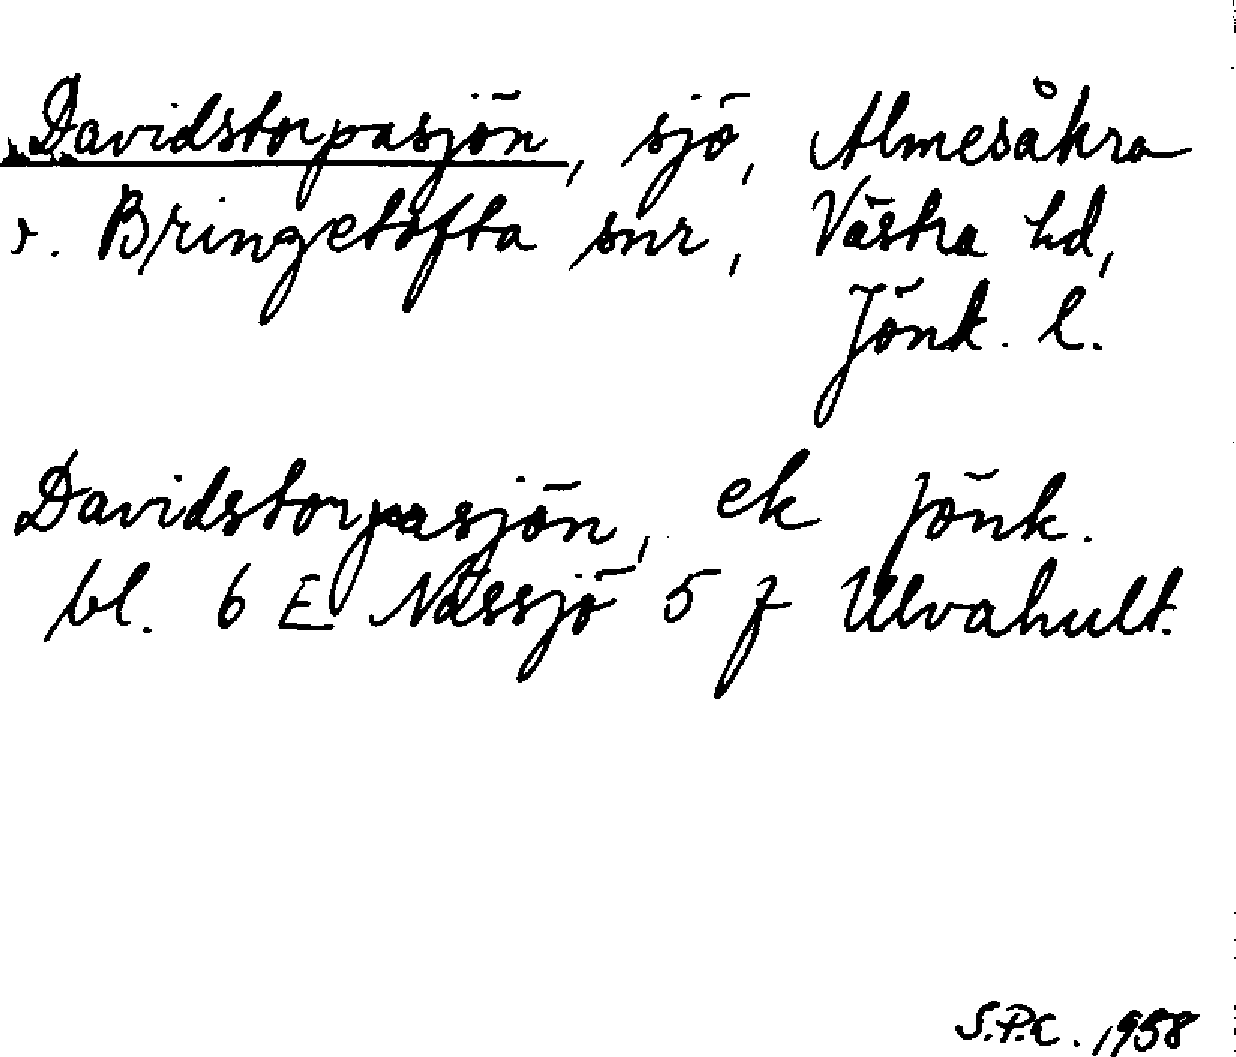 Davidstorpasjön, sjö, Almesåkra
o. Bringetofta snr, Västra hd,
Jönk. l.
Davidstorpasjön, ek Jönk.
bl. 6 E Nässjö 5 f Ulvahult.
S.P.C. 1958